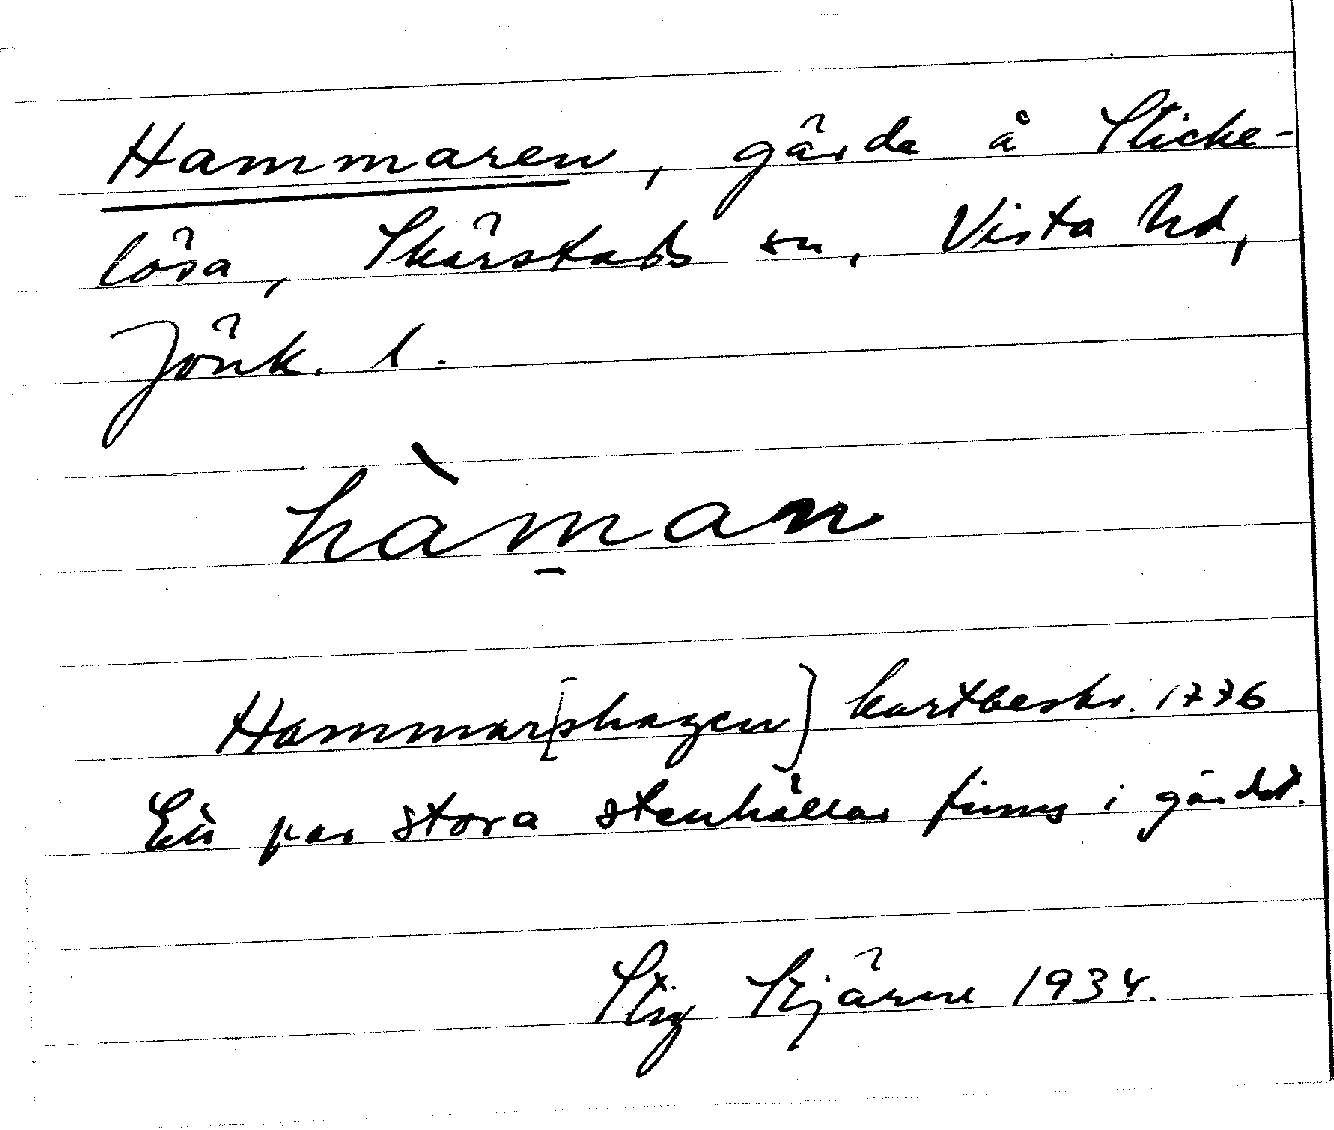 Hammaren, gärde å Sticke-
lösa, Skärstads sn, Vista hd,
Jönk. l.
hàm̱an
Hammar[shagen] kartbeskr. 1776
Ett par stora stenhällar finns i gärdet.
Stig Stjärne 1934.